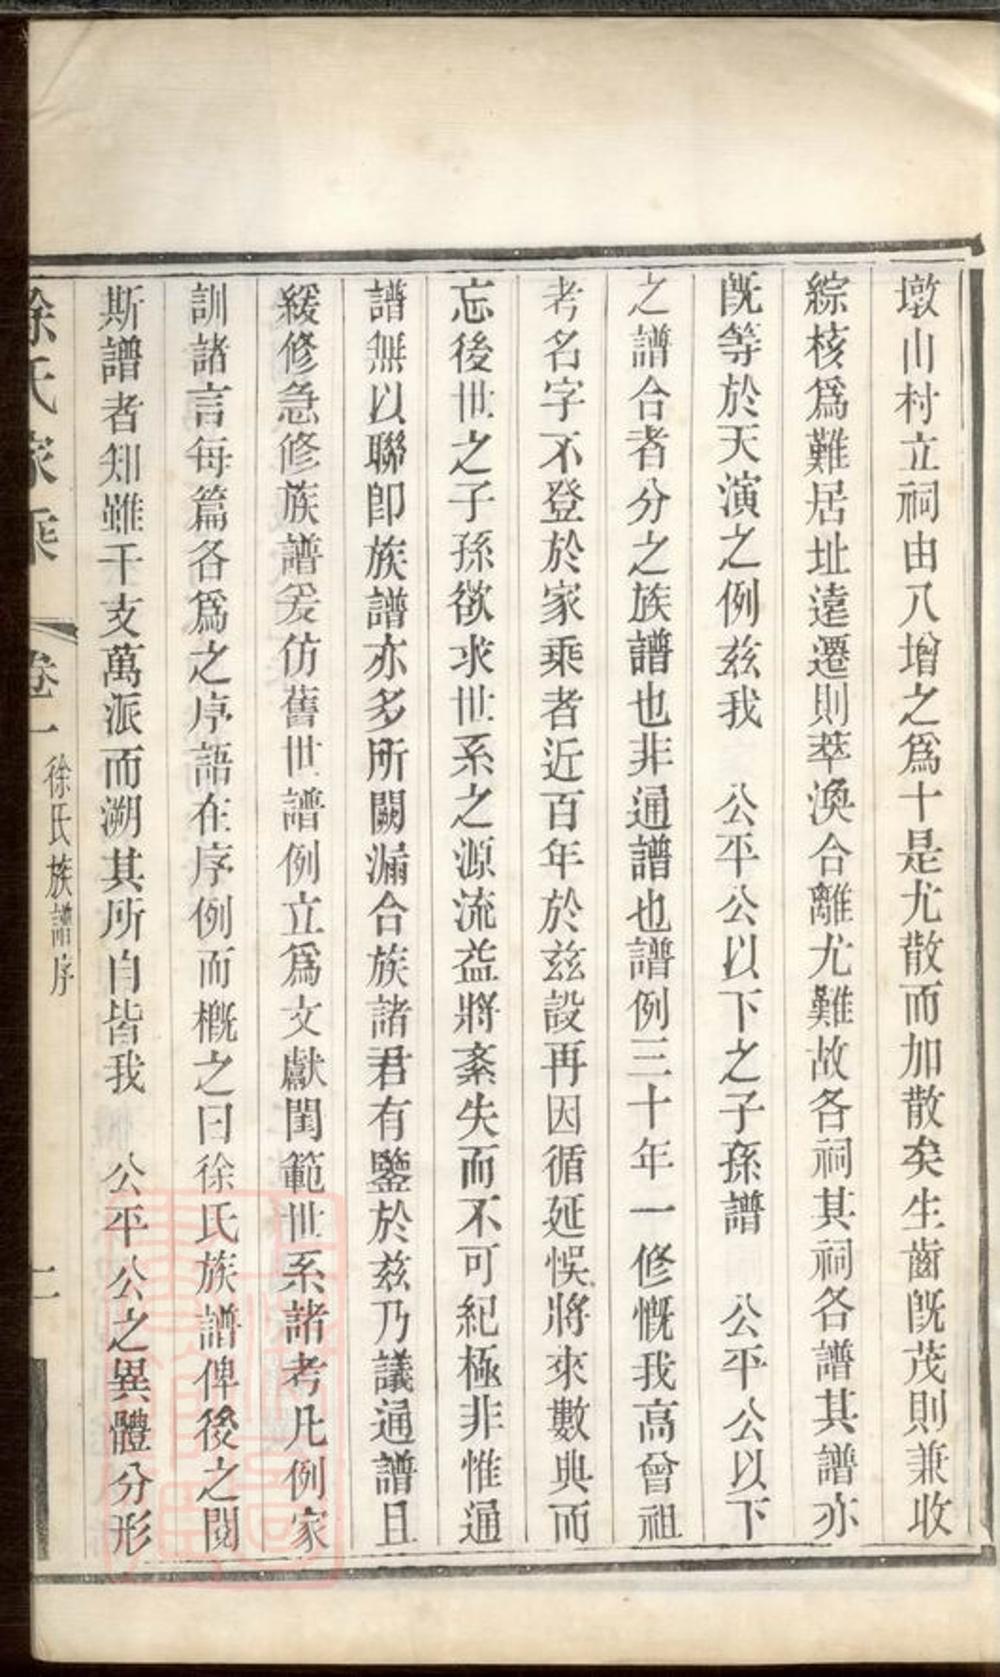 墩山村立祠由八增之爲十是尤散而加散矣生齒既茂則兼收
綜核爲難居址遠遷則萃渙合離尤難故各祠其祠各譜其譜亦
既等於天演之例茲我　公平公以下之子孫譜　公平公以下
之譜合者分之族譜也非通譜也譜例三十年一修慨我高曾祖
考名字不登於家乘者近百年於茲設再因循延悞將來數典而
忘後世之子孫欲求世系之源流益將紊失而不可紀極非惟通
譜無以聯卽族譜亦多所闕漏合族諸君有鑒於茲乃議通譜且
緩修急修族譜爰仿舊世譜例立爲文獻閨範世系諸考凡例家
訓諸言每篇各爲之序語在序例而概之曰徐氏族譜俾後之閱
斯譜者知雖千支萬派而溯其所自皆我　公平公之異體分形
徐氏家乘　卷一　徐氏族譜序　二